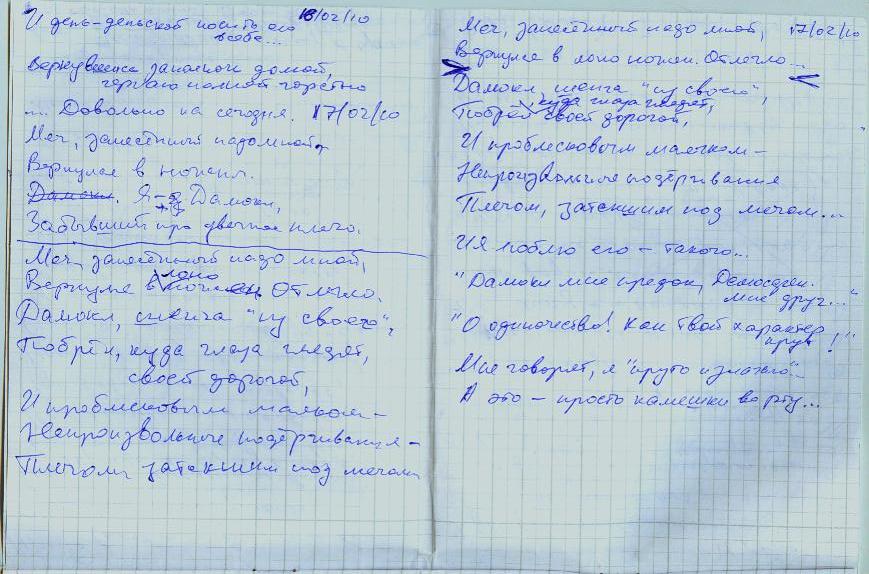 И день-деньской носить его 18/02/10
в себе...
Вернувшись запахом домой,
черпаю полной горстью
... Довольно на сегодня. 17/02/10
Меч, занесённый надо мной,
Вернулся в ножны.
Дамокл. Я – Дамокл,
Забывший про двечное плечо.
Меч, занесённый надо мной,
Вернулся в лоно ножен. Отлегло.
Дамокл, смеясь "из своего",
Побрёл, куда глаза глядят,
своей дорогой,
И проблесковым маяком –
Непроизвольные подёргивания –
Плечом, затекшим под мечом
Меч, занесённый надо мной, 17/02/10
Вернулся в лоно ножен. Отлегло...
Дамокл, "из своего",
куда глаза глядят,
Побрёл своей дорогой,
И проблесковым маячком –
Непроизвольные подёргивания
Плечом, затекшим под мечом...
И я люблю его – такого...
"Дамокл мне предок, Демосфен
мне друг..."
"О одиночество! Как твой характер
крут!"
Мне говорят, я "круто изложил"...
А это – просто камешки во рту...